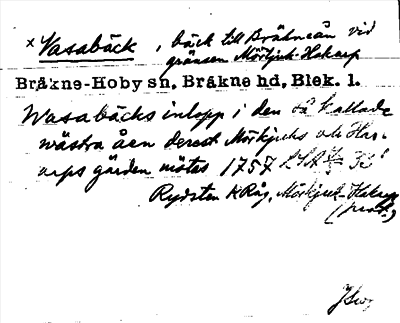 x Vasabäck, bäck till Bräkneån vid
gränsen Mörtjuk-Hakarp
Bråkne-Hoby sn, Bräkne hd, Blek. l.
Wasabäcks inlopp i den så kallade
wästra åen derest Mörkjuks och Har-
arps gärden mötas 1757 LSA
Rydsten K Råg, Mörkjuk-Hakarp